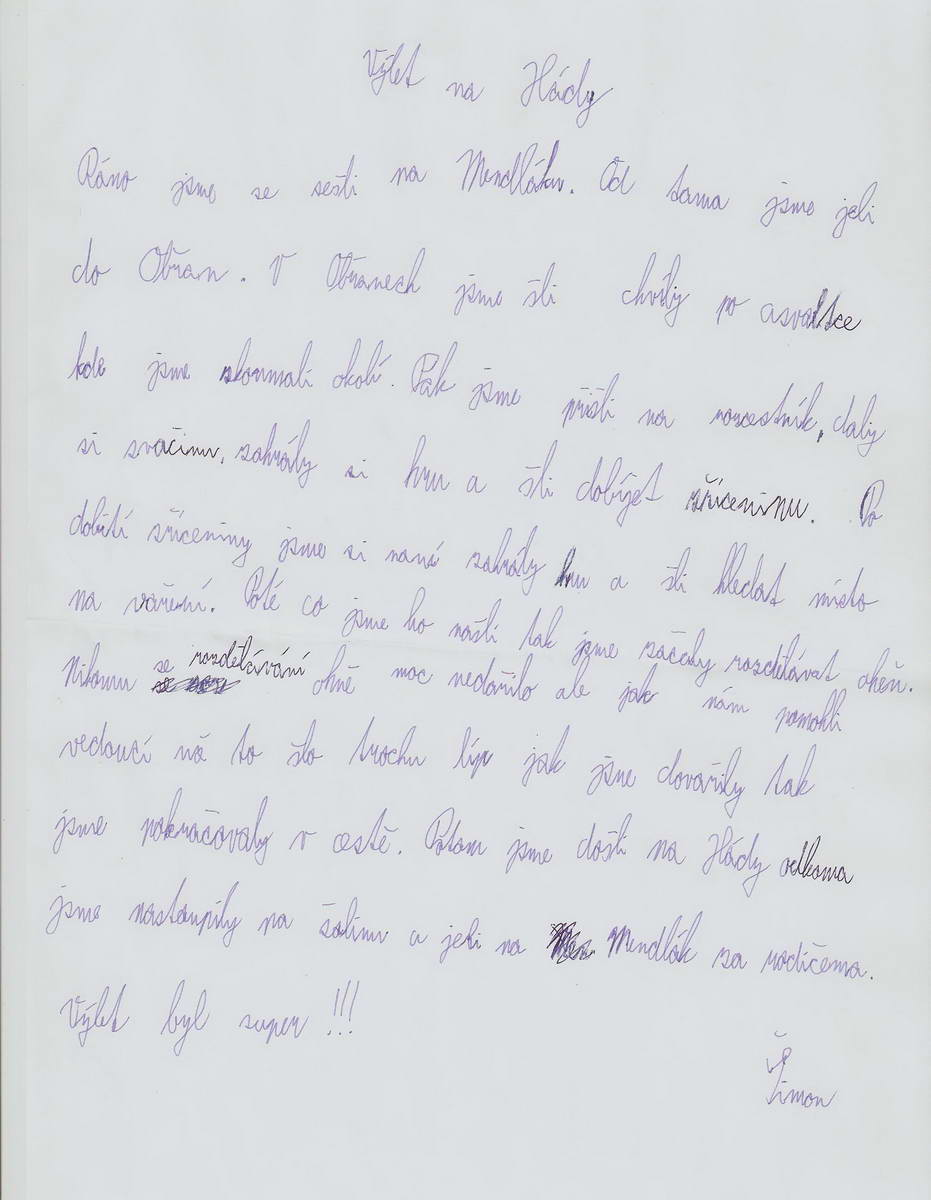 Výlet na Hády
Ráno jsme se sešli na Mendláku. Od tama jsme jeli
do Obřan. V Obřanech jsme šli chvíly po asvaltce
kde jsme skoumali okolí. Pak jsme přišli na rozcestník, daly
si svačinu, zahrály si hru a šli dobíjet zříceninu. Po
dobití zříceniny jsme si na zahrály hru a šli hledat místo
na vaření. Poté co jsme ho našli tak jsme začaly rozdělávat oheň.
Nikomu se rozdělávání ohně moc nedařilo ale jak nám pomohli
vedoucí tak to šlo trochu líp jak jsme dovařily tak
jsme pokračovaly v cestě. Potom jsme došli na Hády odkama
jsme nastoupily na šalinu a jeli na Mendlák za rodičema.
Výlet byl super !!!
Šimon